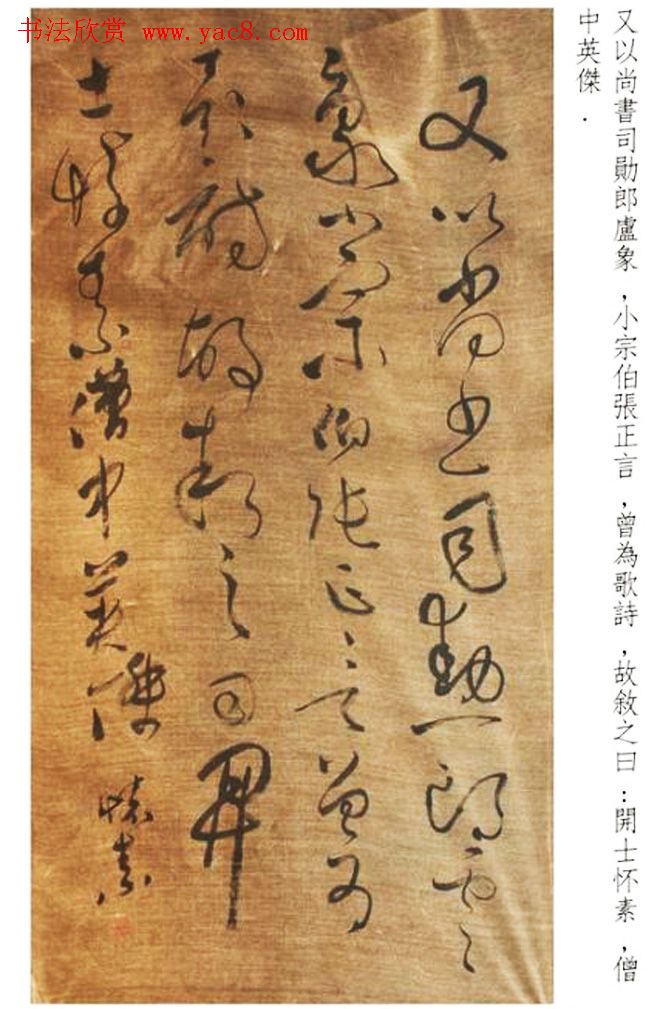 书法欣赏 www.yac8.com
又以尚書司勛郎盧象，小宗伯張正言，曾為歌詩，故敘之曰：開士怀素，僧
中英傑．
又以尚書司勳郎盧
象小宗伯張正言曾為
歌詩故敘之曰開
士懷素僧中英傑
懷素